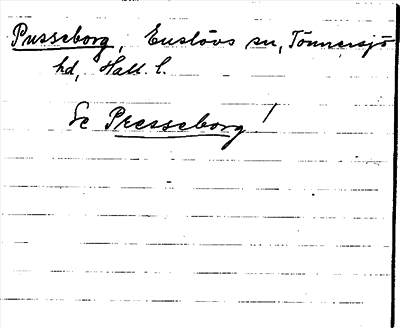 Pusseborg, Enslövs sn, Tönnersjö
hd, Hall. l.
Se Presseborg!